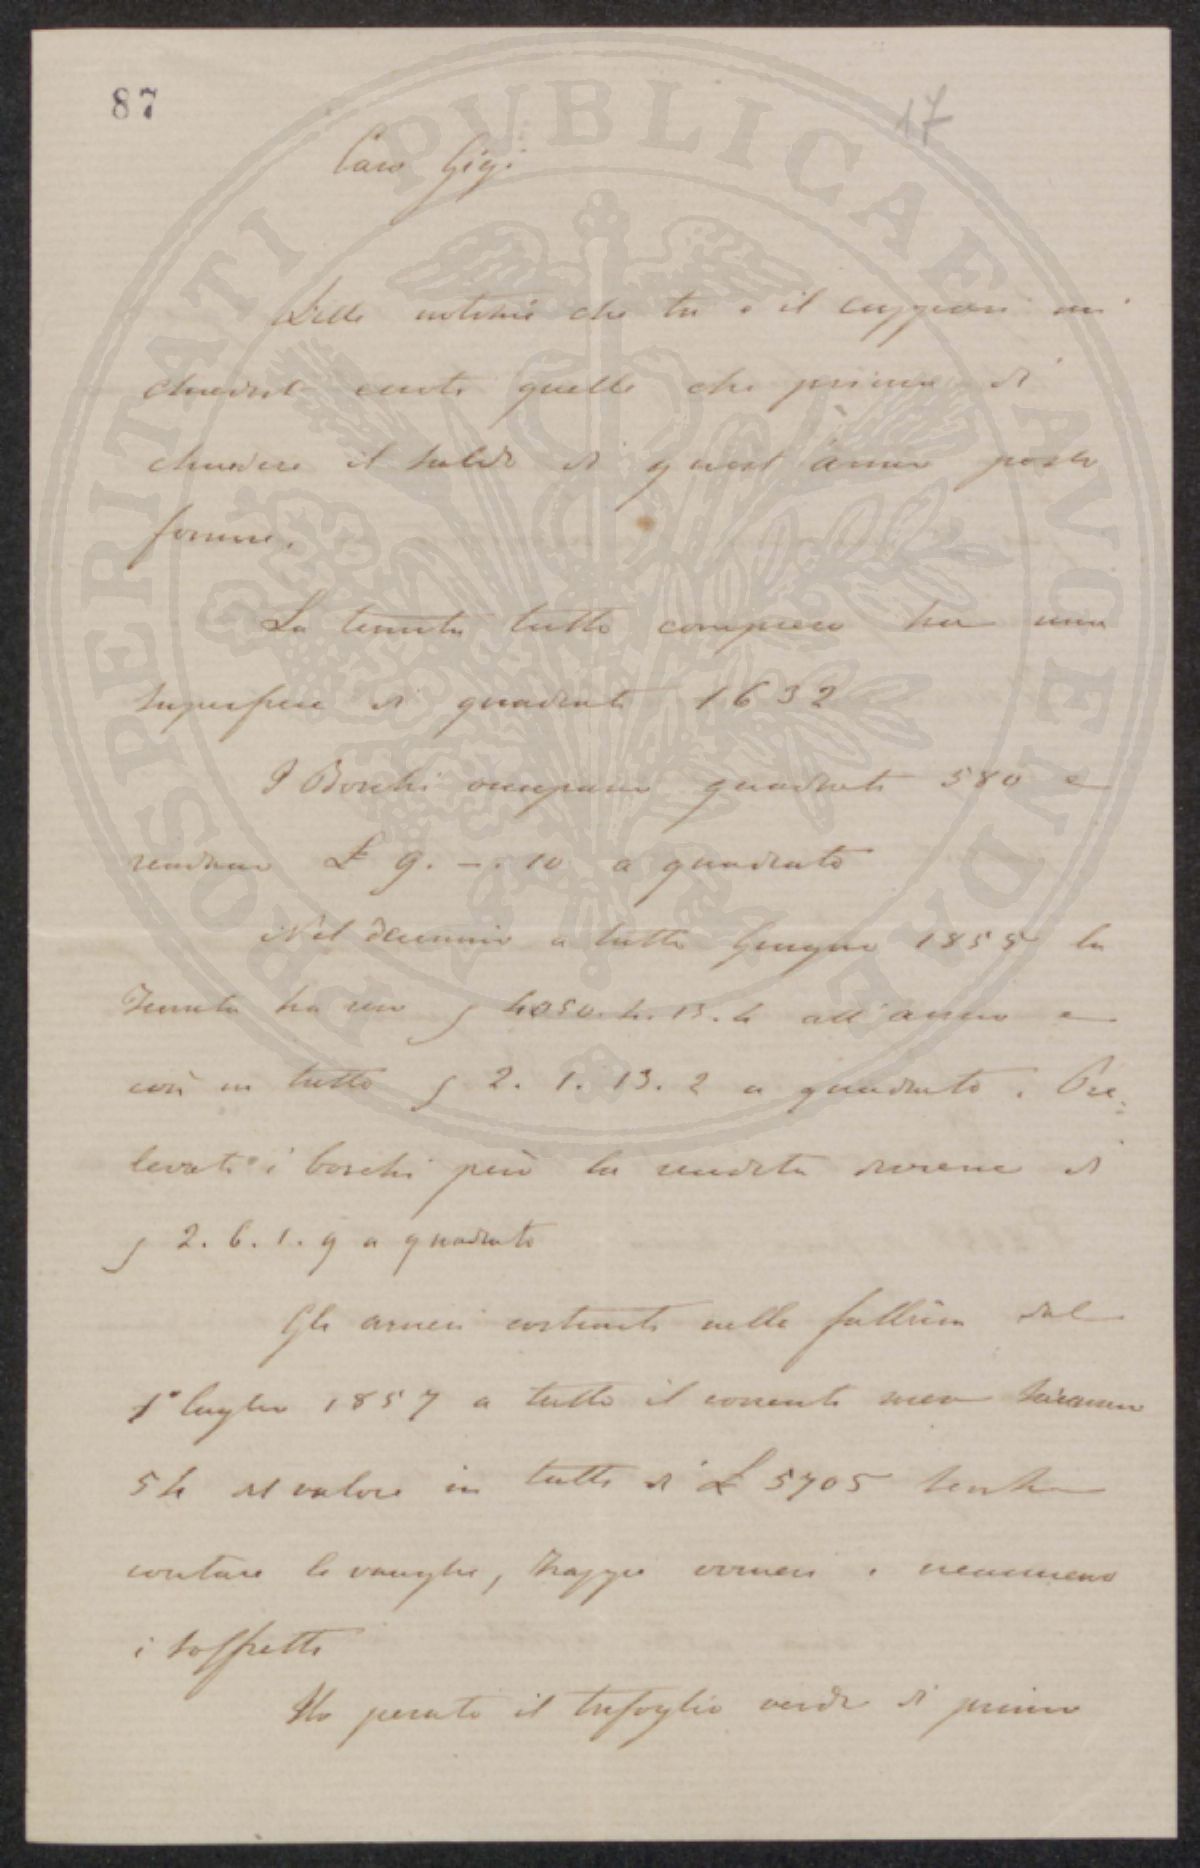 87
17
Caro Gigi
Delle notizie che tu e il mi
chiedete eccoti quelle che prima di
chiudere il saldo di quest'anno posso
fornire.
La tenuta tutto compreso ha una
superficie di quadrati 1632
I Boschi occupano quadrati 580 e
rendono £ 9. –. 10 a quadrato
Nel decennio a tutto Giugno 1855 la
Tenuta ha reso 4050. 4. 13. 4 all'anno e
così in tutto 2. 1. 13. 2 a quadrato. Pre-
levati i boschi però la rendita diviene di
2. 6. 1. 9 a quadrato
Gli arnesi costruiti nella fabbrica dal
1° luglio 1857 a tutto il corrente mese saranno
54 del valore in tutto di £ 5705 senza
contare le vanghe, zappe vomeri e nemmeno
i soffietti
Ho pesato il trifoglio verde di primo
PROSPERITATI PUBLICAE AVGENDAE